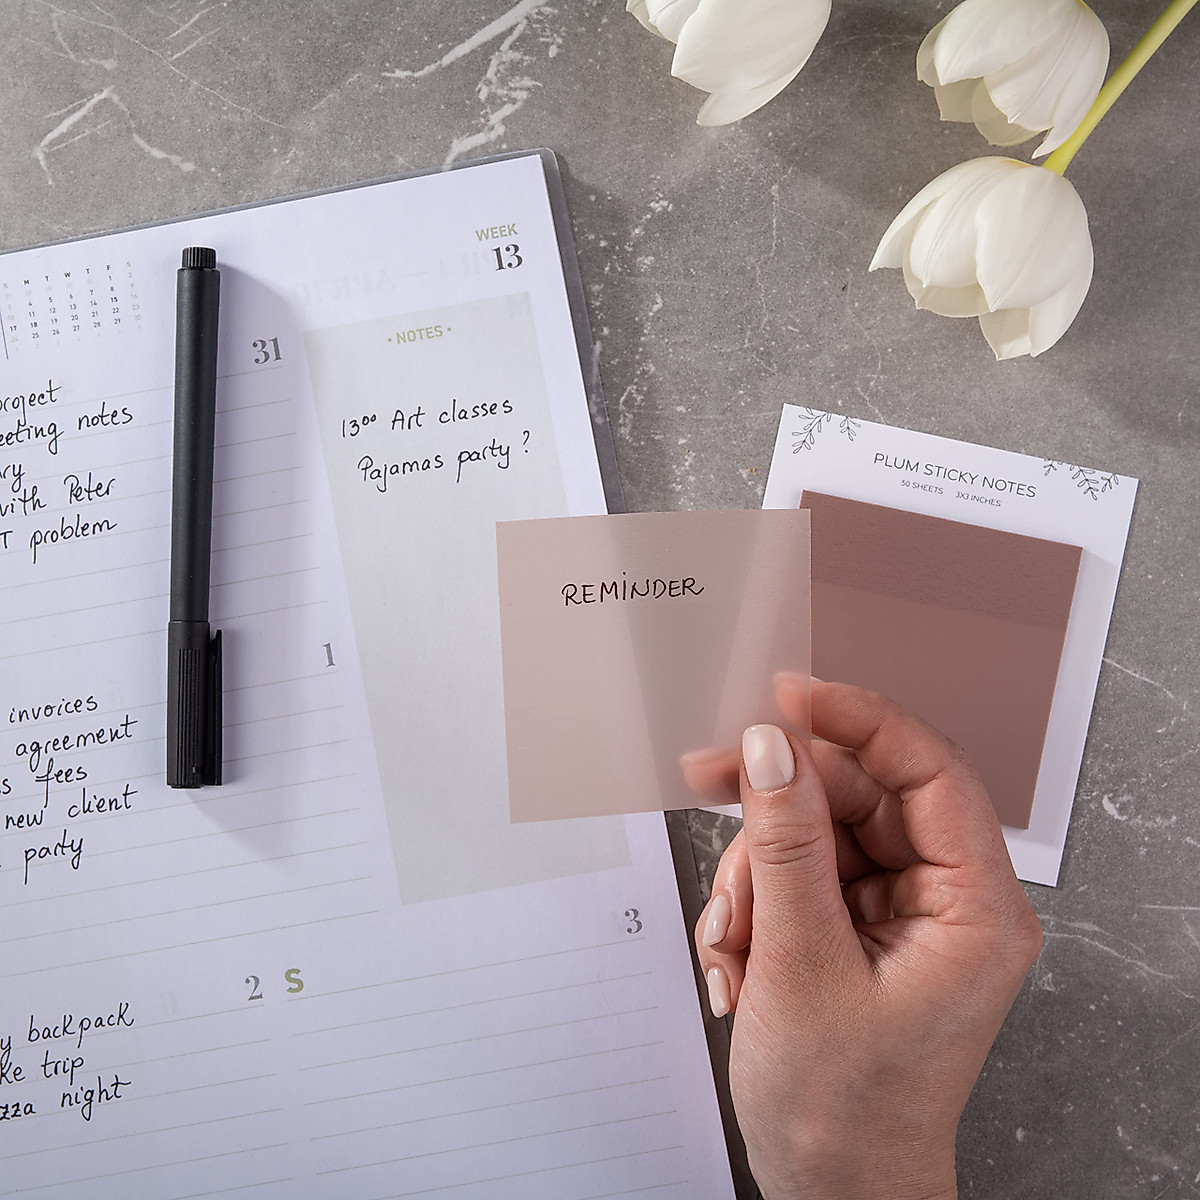 WEEK
13
S M T W T F S
31
• NOTES •
project
meeting notes
with Peter
problem
13⁰⁰ Art classes
Pajamas party ?
PLUM STICKY NOTES
50 SHEETS 3X3 INCHES
REMINDER
1
invoices
agreement
fees
new client
party
3
2 S
backpack
trip
night